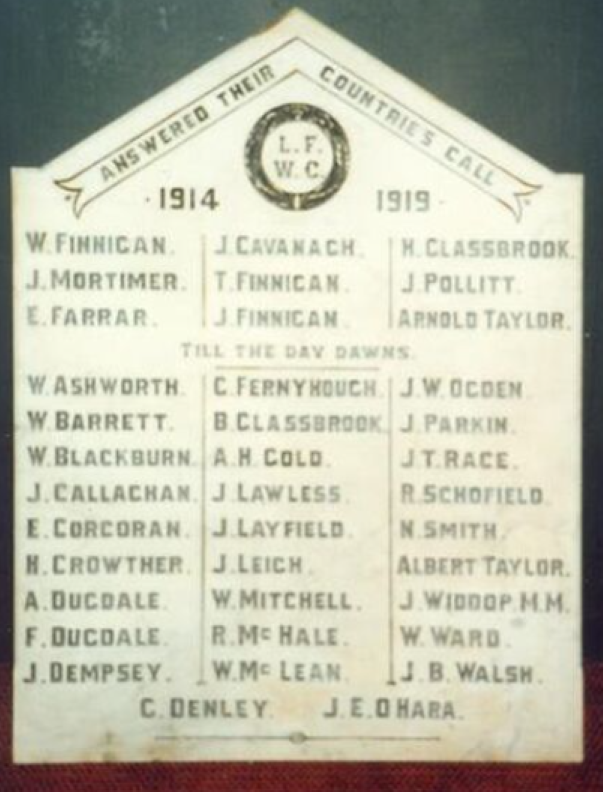 ANSWERED THEIR COUNTRIES CALL
L.F.
W.C.
1914 1919
W. FINNIGAN. J. CAVANAGH. H. GLASSBROOK.
J. MORTIMER. T. FINNIGAN. J. POLLITT.
E. FARRAR. J. FINNIGAN. ARNOLD TAYLOR.
TILL THE DAY DAWNS.
W. ASHWORTH. C. FERNYHOUGH. J. W. OGDEN.
W. BARRETT. B. GLASSBROOK. J. PARKIN.
W. BLACKBURN. A. H. GOLD. J. T. RACE.
J. CALLAGHAN. J. LAWLESS. R. SCHOFIELD.
E. CORCORAN. J. LAYFIELD. N. SMITH.
H. CROWTHER. J. LEIGH. ALBERT TAYLOR.
A. DUGDALE. W. MITCHELL. J. WIDDOP. M.M.
F. DUGDALE. R. Mc HALE. W. WARD.
J. DEMPSEY. W. Mc LEAN. J. B. WALSH.
C. DENLEY. J. E. O HARA.